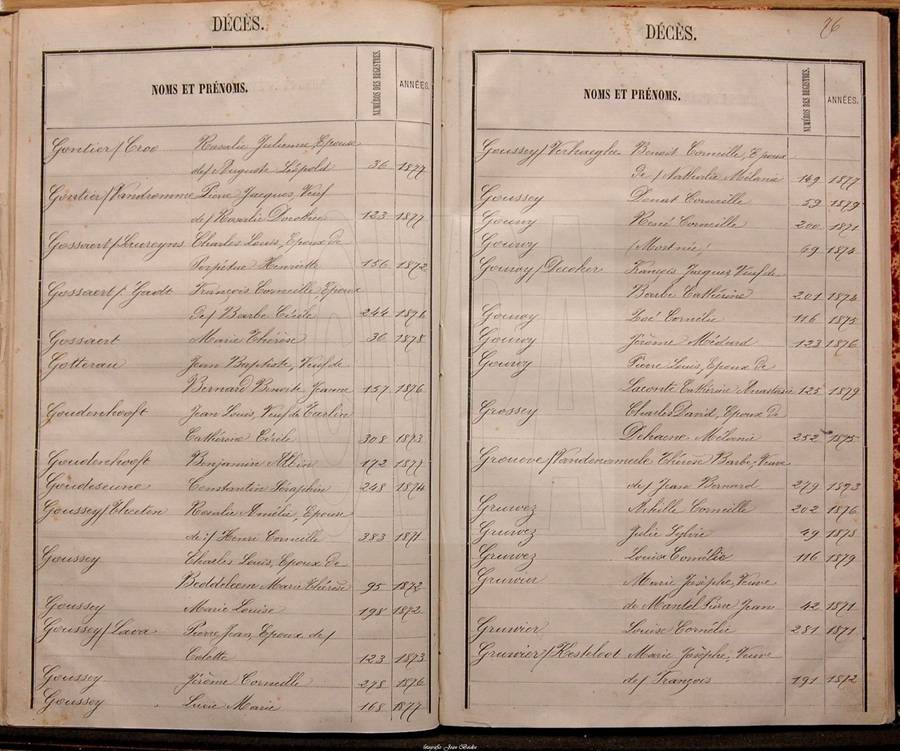 DÉCÈS.
NOMS ET PRÉNOMS. NUMÉROS DES REGISTRES. ANNÉES.
Gontier/Croo Rosalie Julienne, Epouse
de/ Auguste Léopold 36 1877
Gontier/Vandromme Pierre Jacques, Veuf
de/ Rosalie Dorothée 123 1877
Gossaert/ Charles Louis, Epoux de
Perpétue Henriette 156 1872
Gossaert/ François Corneille, Epoux
de/ Barbe Cécile 244 1876
Gossaert Marie Thérèse 36 1878
Gotterau Jean Baptiste, Veuf de
Bernard Benoite Jeanne 157 1876
Goudenhooft Jean Louis, Veuf de
Cathérine Cécile 308 1873
Goudenhooft Benjamin 172 1877
Goudeseune Constantin Séraphin 248 1874
Goussey/ Rosalie Amélie, Epouse
de/ Henri Corneille 383 1871
Goussey Charles Louis, Epoux de
Beddeleem Marie Thérèse 95 1872
Goussey Marie Louise 198 1872
Goussey/Lava Pierre Jean, Epoux de/
Colette 123 1873
Goussey Jérôme Corneille 278 1876
Goussey Lucie Marie 168 1877
DÉCÈS. 76
NOMS ET PRÉNOMS. NUMÉROS DES REGISTRES. ANNÉES.
Goussey/Verhaeghe Benoit Corneille, Epoux
de/ Nathalie Mélanie 149 1877
Goussey Donat Corneille 59 1879
Gouwy René Corneille 200 1871
Gouwy (Mort-née) 69 1874
Gouwy/Decoker François Jacques Veuf de
Barbe Cathérine 201 1874
Gouwy Zoé Cornélie 116 1875
Gouwy Jérôme Médard 123 1876
Gouwy Pierre Louis, Epoux de
Laconte Cathérine Anastasie 125 1879
Grossey Charles David, Epoux de
Dehaene Mélanie 252 1875
Thérèse Barbe, Veuve
de/ Jean Bernard 279 1873
Gruwez Achille Corneille 202 1876
Gruwez Julie Sylvie 49 1878
Gruwez Louise Cornélie 116 1879
Gruwier Marie Josèphe, Veuve
de Mantel Pierre Jean 42 1871
Gruwier Louise Cornélie 281 1871
Gruwier/Kesteloot Marie Josèphe, Veuve
de/ François 191 1872
fotografie Jean Baeke